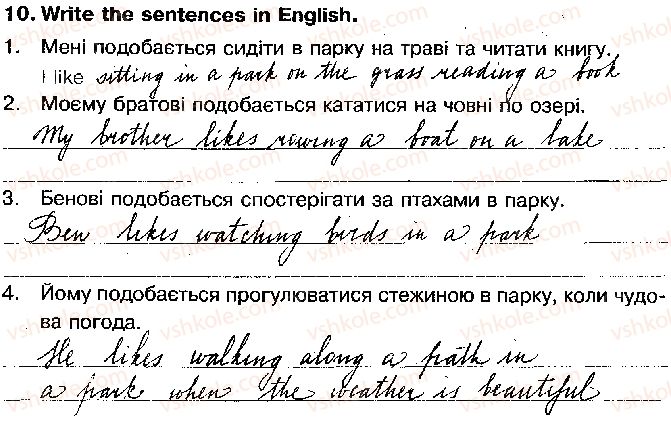 10. Write the sentences in English.
1. Мені подобається сидіти в парку на траві та читати книгу.
I like sitting in a park on the grass reading a book
2. Моєму братові подобається кататися на човні по озері.
My brother likes rowing a boat on a lake
3. Бенові подобається спостерігати за птахами в парку.
Ben likes watching birds in a park
4. Йому подобається прогулюватися стежиною в парку, коли чудо-
ва погода.
He likes walking along a path in
a park when the weather is beautiful